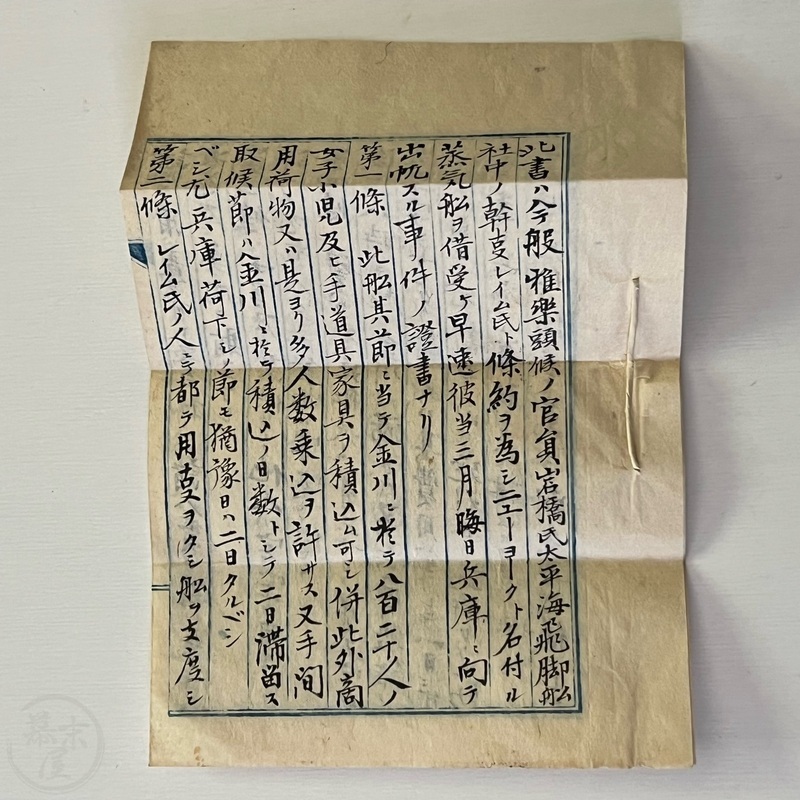 此書ハ今般雅樂頭候ノ官員岩橋氏太平海飛脚舩
社中ノ幹事レイム氏ト條約ヲ為シニューヨークト名付ル
蒸気舩ヲ借受ケ早速彼当三月晦日兵庫ニ向テ
出帆スル事件ノ證書ナリ
第一條 此舩其節ニ当テ金川ニ於テ八百二十人ノ
女子小児及ヒ手道具家具ヲ積込ム可シ併此外商
用荷物又ハ是ヨリ多人数乗込ヲ許サス又手間
取候節ハ金川ニ於テ積込ノ日数トシテ二日滞畄ス
ベシ尤兵庫荷下シノ節モ猶豫日ハ二日タルベシ
第二條 レイム氏ノ人ニテ都テ用事ヲ舩ヲ支度シ
幕末屋